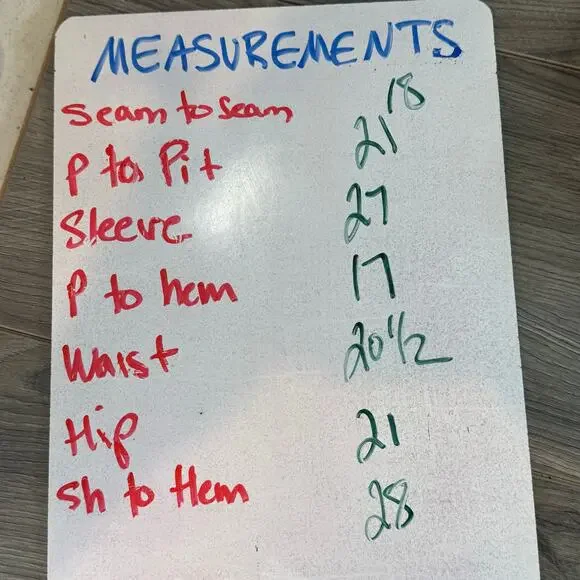 MEASUREMENTS
Seam to Seam 18
P to Pit 21
Sleeve 27
P to hem 17
Waist 20 1/2
Hip 21
Sh to Hem 28